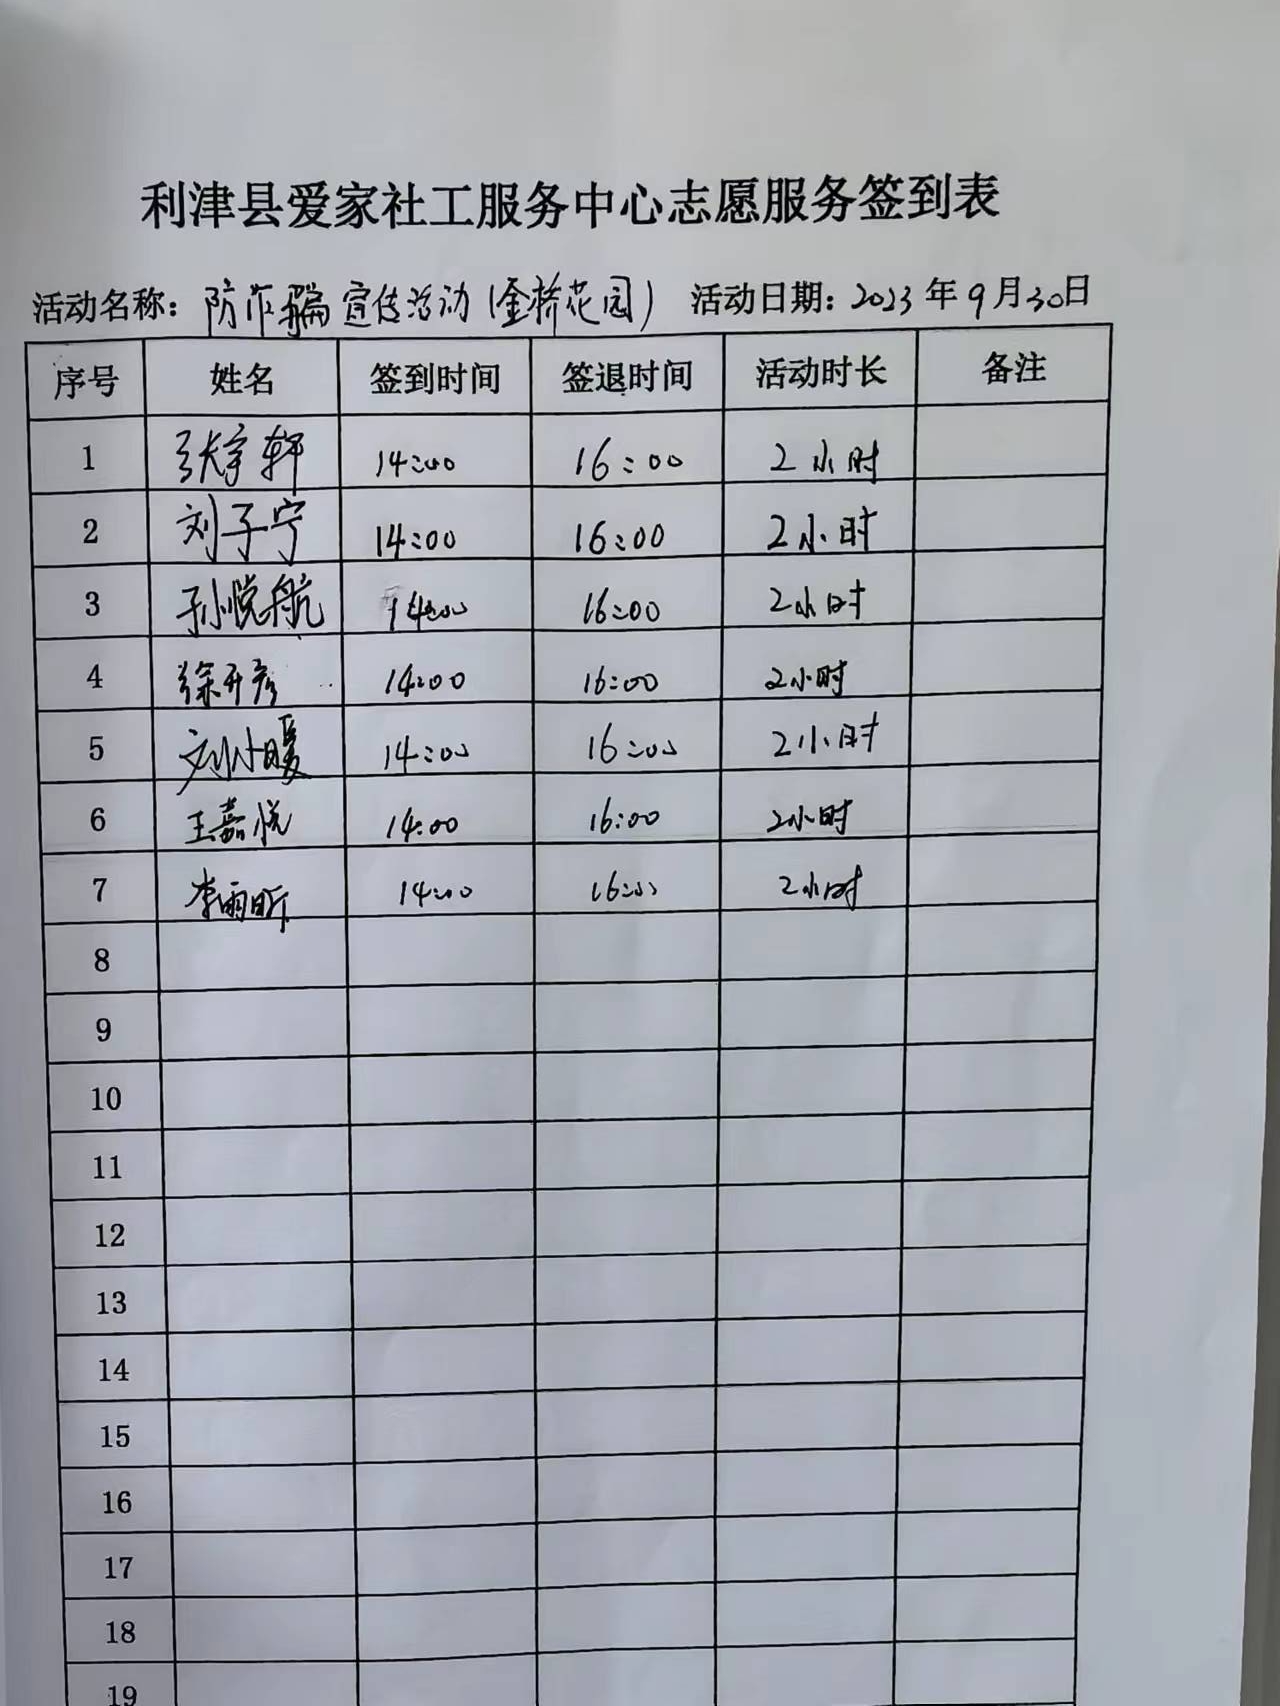 利津县爱家社工服务中心志愿服务签到表
活动名称：防诈骗宣传活动(金桥花园) 活动日期：2023年9月30日
序号 姓名 签到时间 签退时间 活动时长 备注
1 张宇轩 14:00 16:00 2小时
2 刘子宁 14:00 16:00 2小时
3 孙悦航 14:00 16:00 2小时
4 徐开彦 14:00 16:00 2小时
5 刘小暖 14:00 16:00 2小时
6 王嘉悦 14:00 16:00 2小时
7 李雨昕 14:00 16:00 2小时
8
9
10
11
12
13
14
15
16
17
18
19